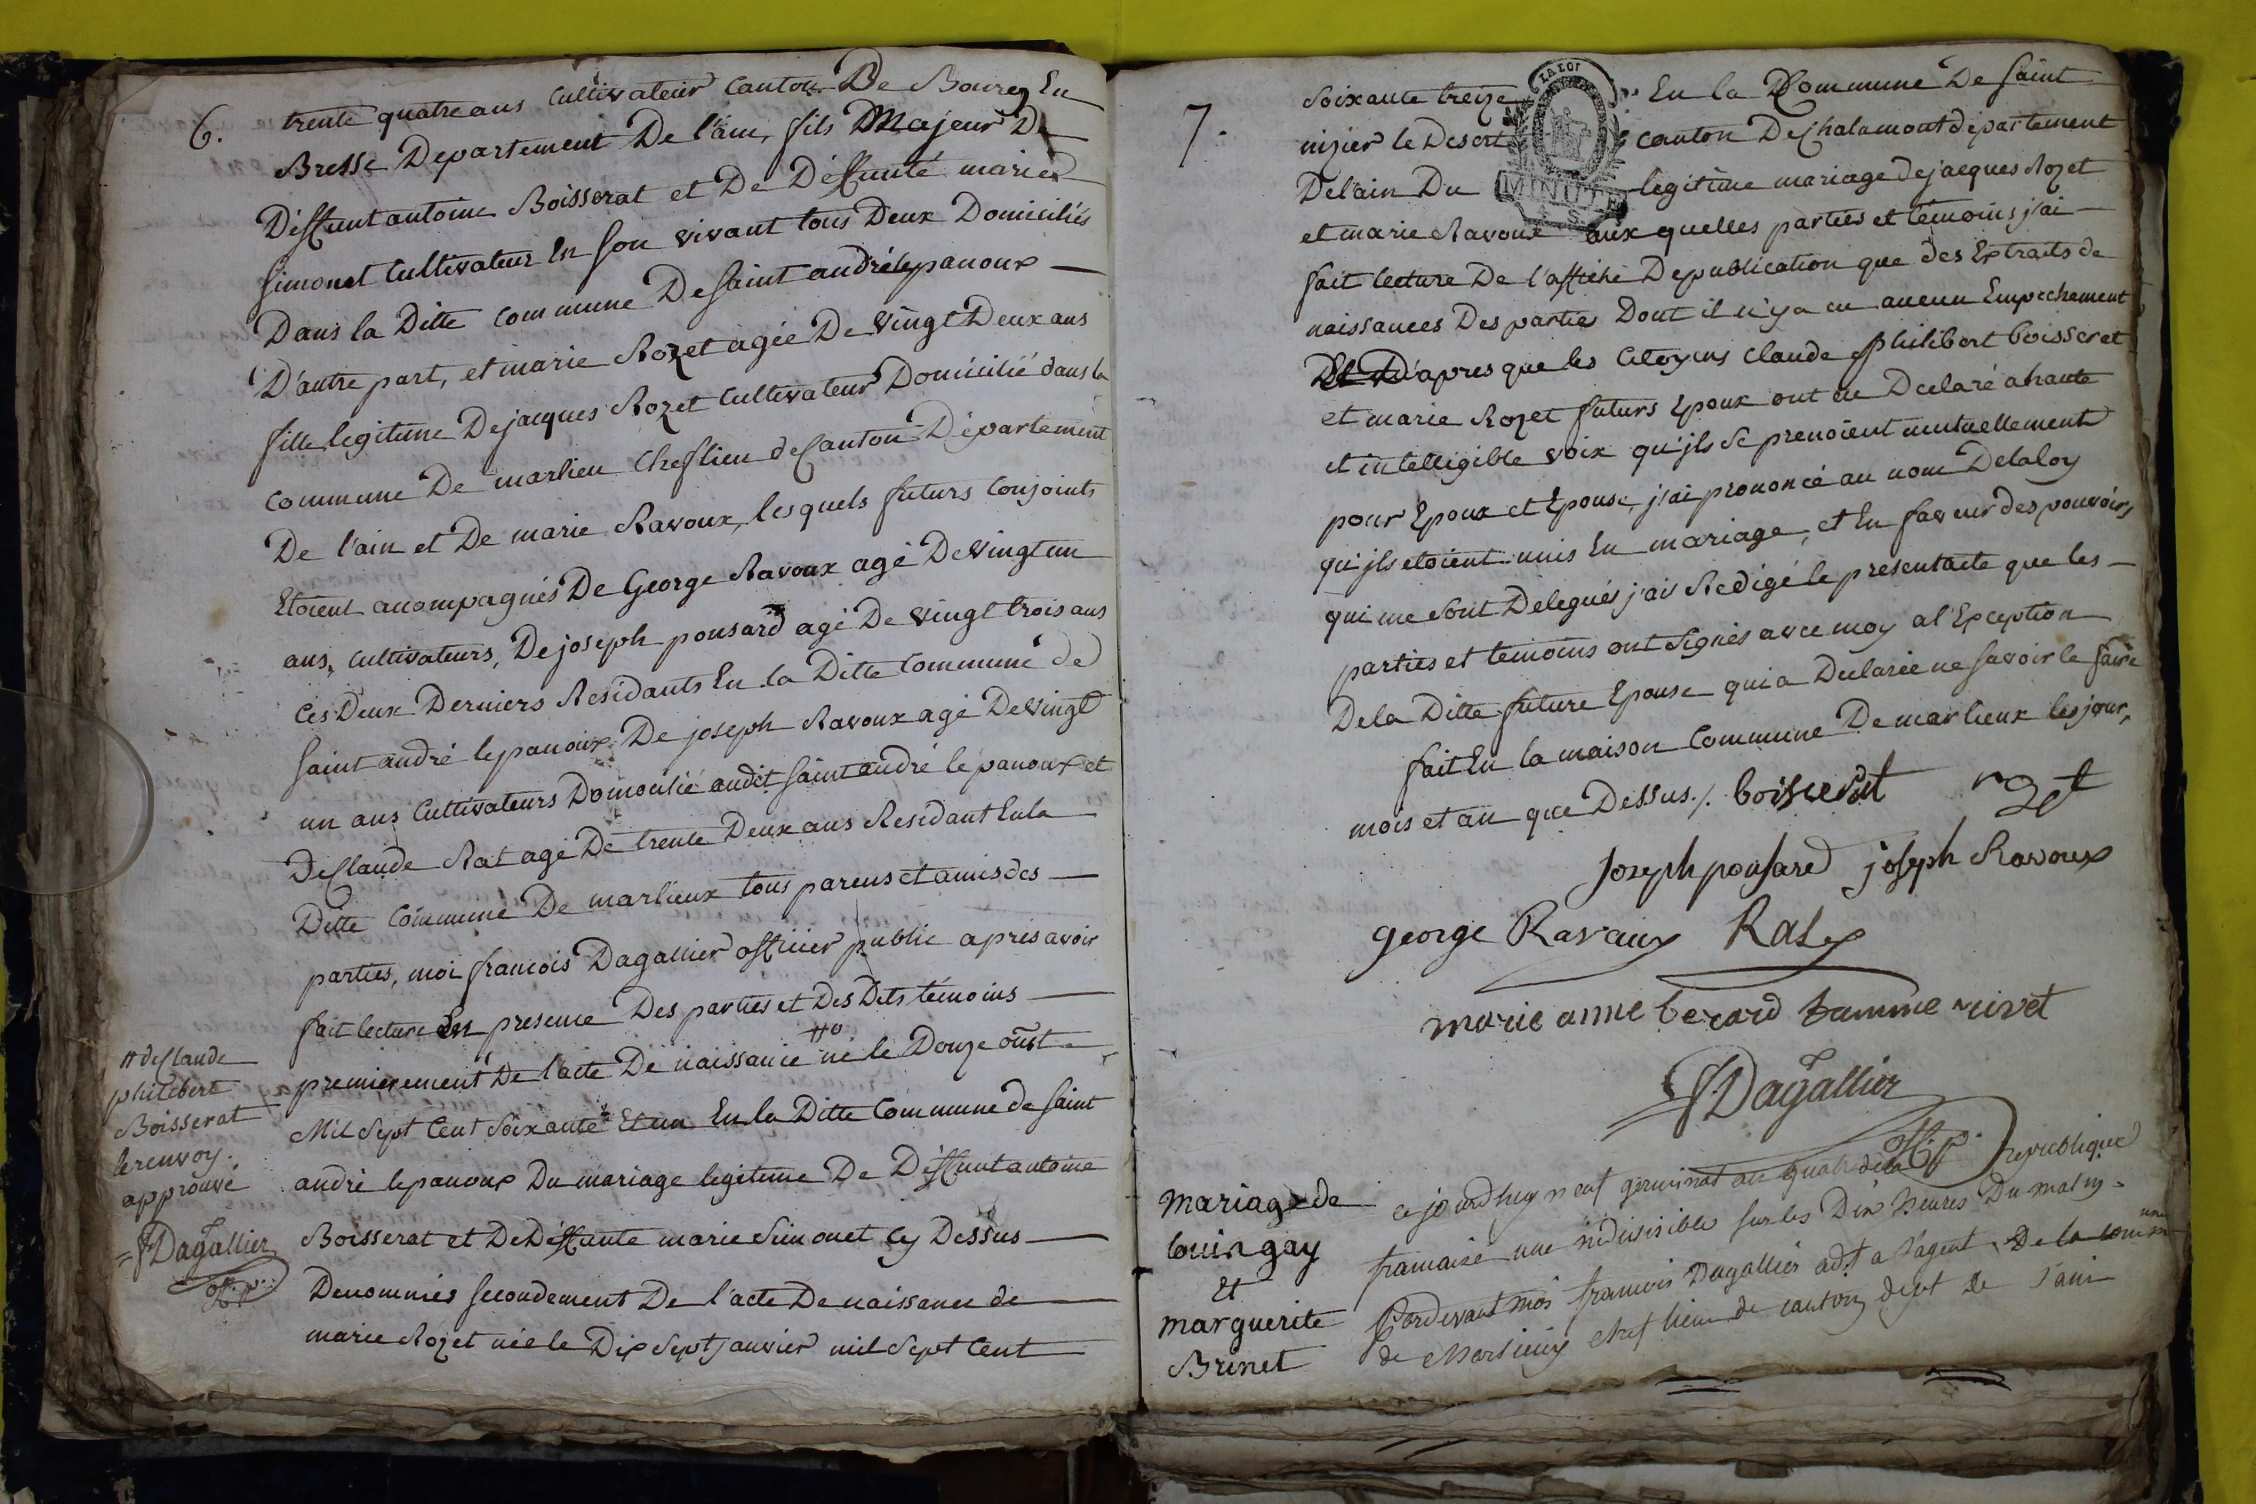 6.
trente quatre ans Cultivateur Canton De Bourg En
Bresse Departement De l'ain, fils Majeur De
Deffunt antoine Boisserat et De Deffunte marie
Simonet Cultivateur En son vivant tous Deux Domiciliés
Dans la Ditte commune De saint andré lepanoux
D'autre part, et marie Rozet agée De vingt Deux ans
fille legitime De jacques Rozet Cultivateur Domicilié dans la
commune De marlieu Cheflieu de Canton Département
De l'ain et De marie Ravoux, lesquels futurs conjoints
Etoient acompagnés De George Ravoux agé De vingt un
ans, cultivateurs, De joseph ponsard agé De vingt trois ans
ces Deux Derniers Residants En la Ditte Commune de
saint andré lepanoux De joseph Ravoux agé De vingt
un ans Cultivateurs Domicilié audit saint andré le panoux et
De Claude Rat agé De trente Deux ans Residant En la
Ditte Commune De marlieux tous parens et amis des
parties, moi francois Dagallier officier public apres avoir
fait lecture En presence Des parties et Des Dits témoins
premierement De l'acte De naissance # né le Douze oust
Mil Sept Cent Soixante Et un En la Ditte Commune de saint
andré lepanoux Du mariage legitime De Deffunt antoine
Boisserat et De Deffunte marie Simonet Cy Dessus
Denommés secondement De l'acte De naissance de
marie Rozet née le Dix Sept janvier mil Sept Cent
# de Claude
philibert
Boisserat
le renvoy
approuvé
Dagallier
off. p.
7.
LA LOI
MINUTE
Soixante treize En la Commune De saint
nizier le Desert Canton De Chalamont département
De l'ain Du legitime mariage de jacques Rozet
et marie Ravoux aux quelles parties et témoins j'ai
fait lecture De l'affiche De publication que des Extraits de
naissances Des parties Dont il n'y a eu aucun Empechement
Et D'apres que les Citoyens Claude philibert boisserat
et marie Rozet futurs Epoux ont eu Declaré a haute
et intelligible voix qu'jls se prenoient mutuellement
pour Epoux et Epouse, j'ai prononcé au nom De la loy
qu'jls etoient unis En mariage, et En faveur des pouvoirs
qui me sont Delegués j'ai Redigé le present acte que les
parties et témoins ont Signés avec moy a l'Exception
De la Ditte future Epouse qui a Declarée ne savoir le faire
fait En la maison Commune De marlieux les jour,
mois et an que Dessus ./. boisserat rozet
Joseph ponsard joseph Ravoux
george Ravaux Rat
marie anne berard famme rivet
F Dagallier
off. p.
mariage de
louis gay
Et
marguerite
Brinet
ce jourdhuy neuf germinal an quatre de la republique
francaise une indivisible sur les Dix heures Du matin
Pardevant moi francois Dagallier adjt a l'agent De la commune
de Marlieux chef lieu de canton dept de l'ain